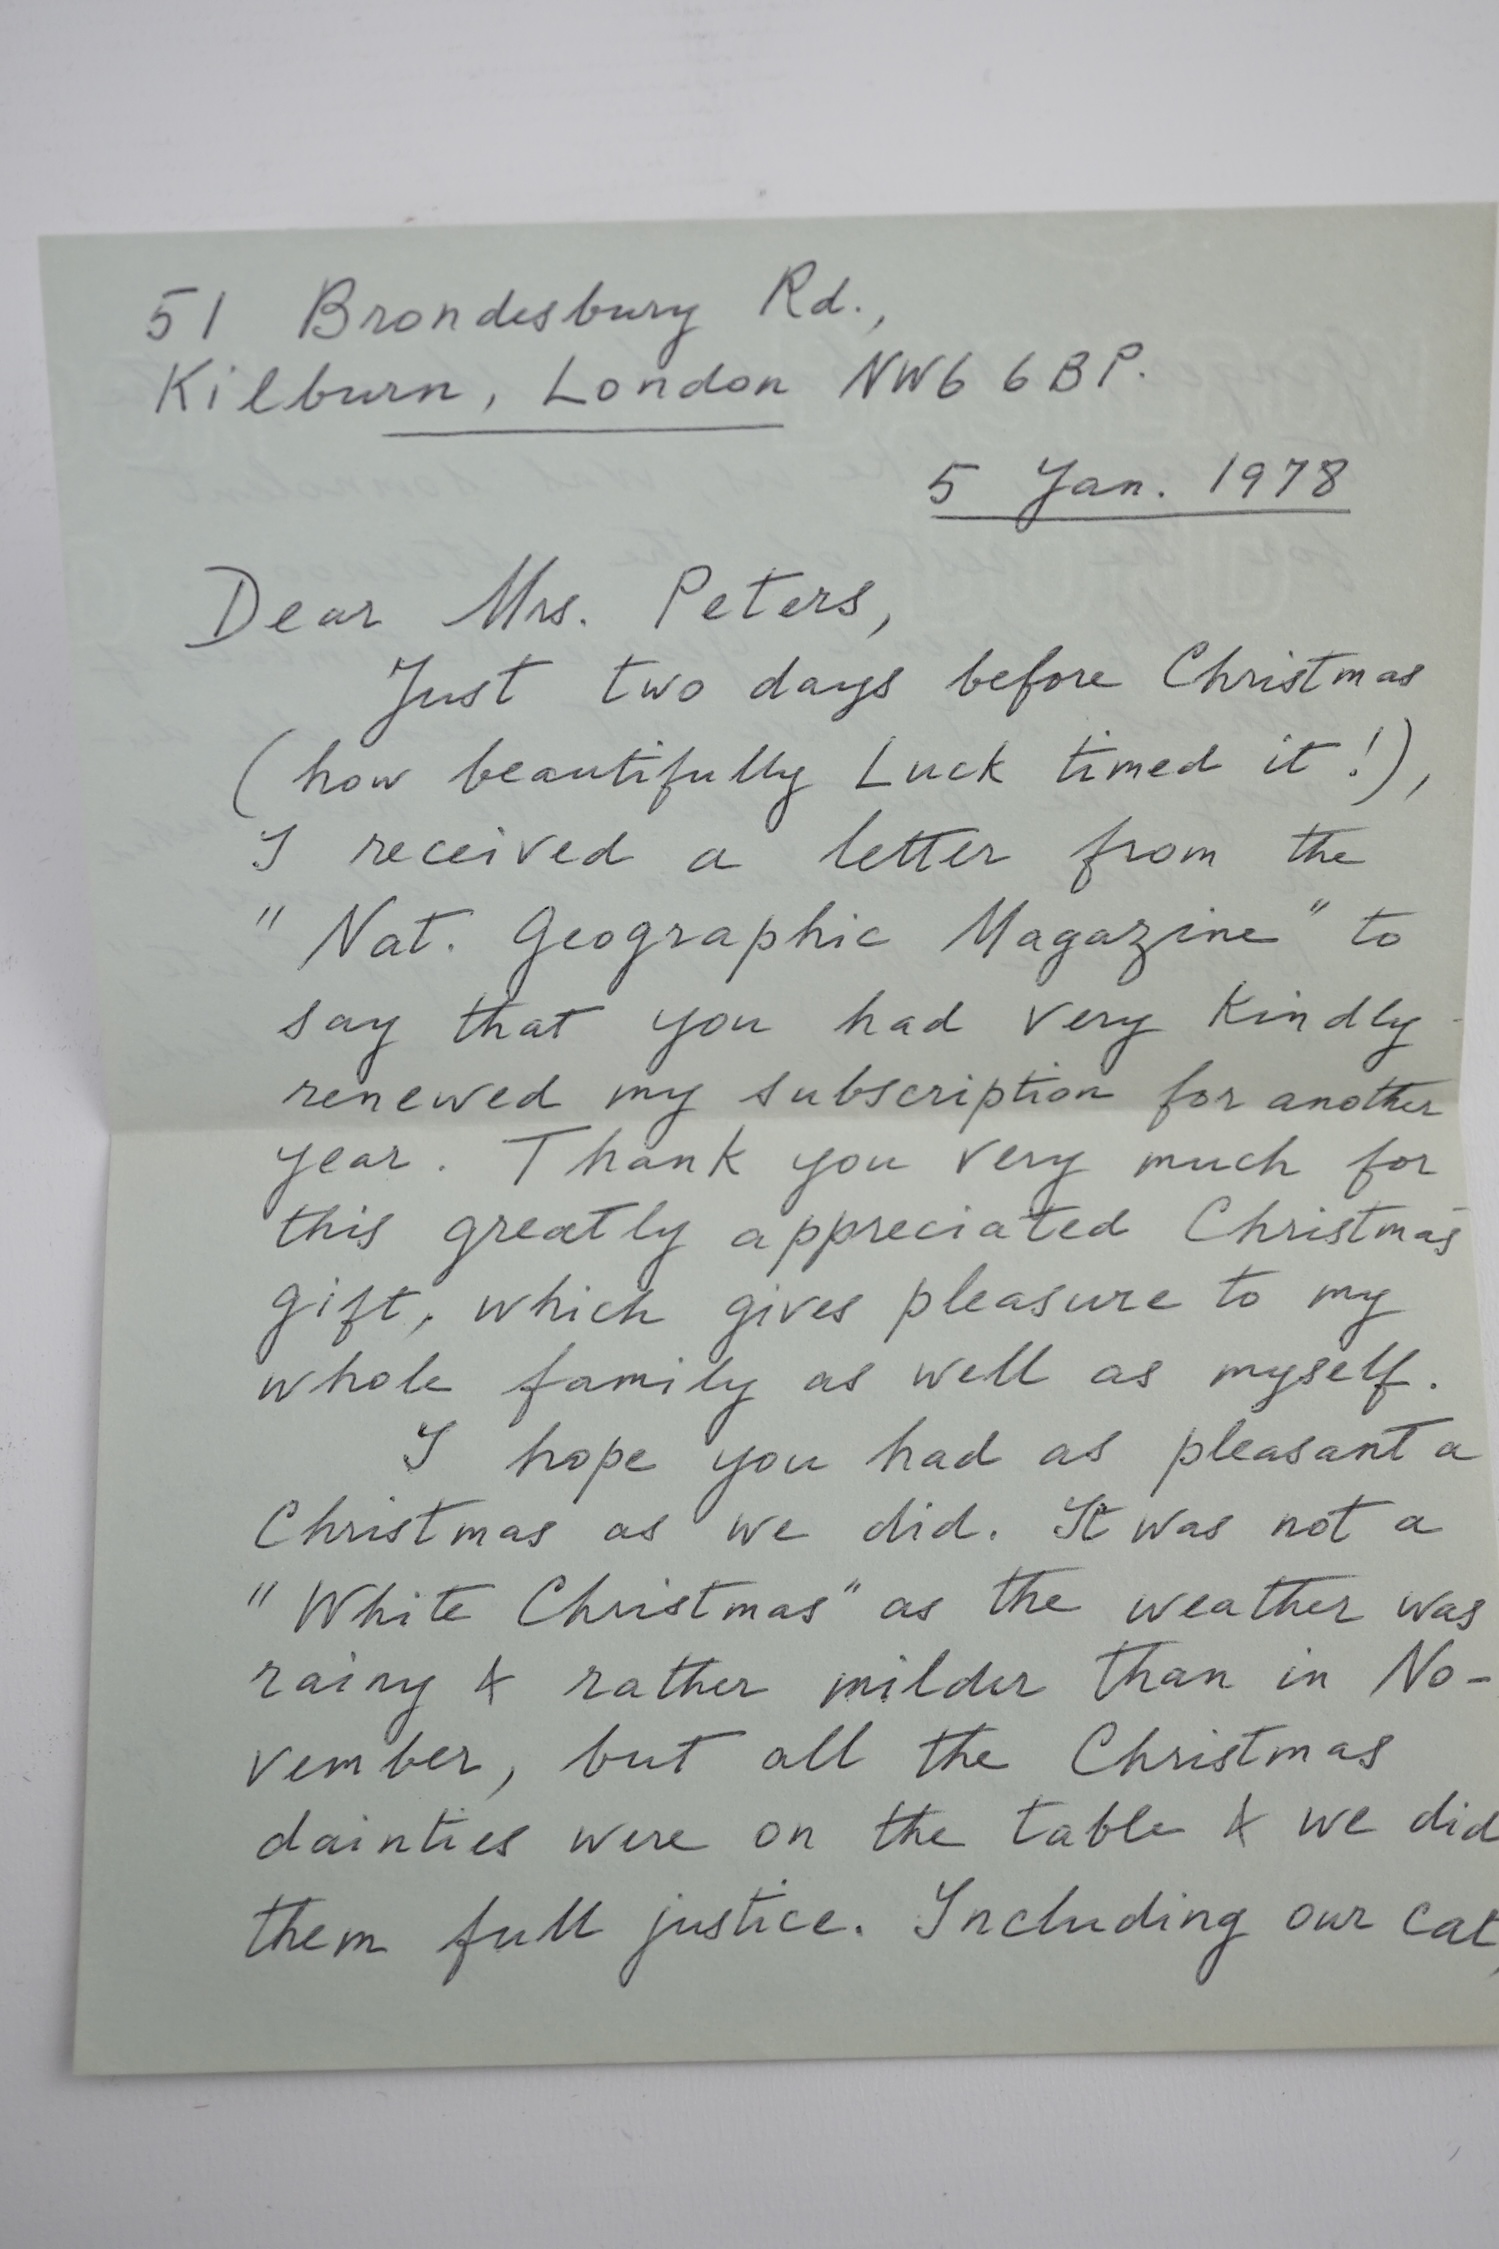 51 Brondesbury Rd.,
Kilburn, London NW6 6BP.
5 Jan. 1978
Dear Mrs. Peters,
Just two days before Christmas
(how beautifully Luck timed it!),
I received a letter from the
"Nat. Geographic Magazine" to
say that you had very kindly
renewed my subscription for another
year. Thank you very much for
this greatly appreciated Christmas
gift, which gives pleasure to my
whole family as well as myself.
I hope you had as pleasant a
Christmas as we did. It was not a
"White Christmas" as the weather was
rainy & rather milder than in No-
vember, but all the Christmas
dainties were on the table & we did
them full justice. Including our cat,